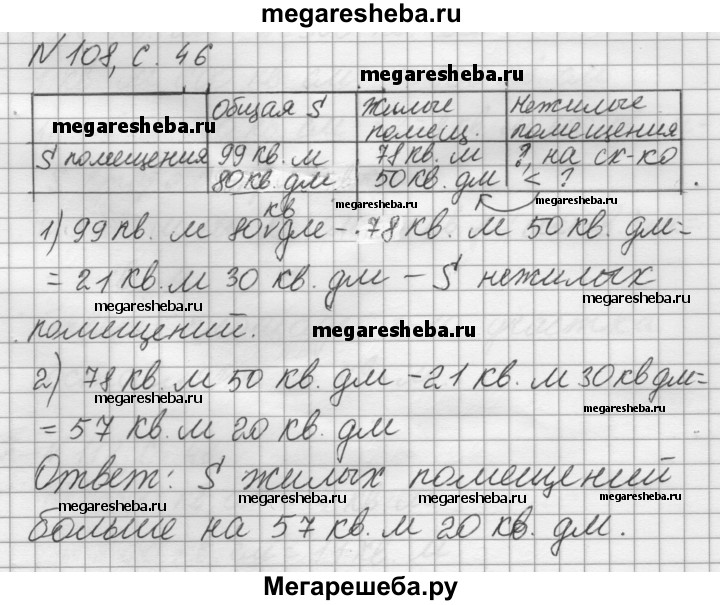 megaresheba.ru
N 108, с. 46
megaresheba.ru
Общая S Жилые помещ. Нежилые помещения
megaresheba.ru
S помещения 99 кв. м 80 кв. дм 78 кв. м 50 кв. дм ?, на ск-ко < ?
megaresheba.ru megaresheba.ru
1) 99 кв. м 80 кв дм - 78 кв. м 50 кв. дм =
= 21 кв. м 30 кв. дм - S нежилых
megaresheba.ru megaresheba.ru
помещений.
megaresheba.ru
2) 78 кв. м 50 кв. дм - 21 кв. м 30 кв дм =
megaresheba.ru megaresheba.ru megaresheba.ru
= 57 кв. м 20 кв. дм
Ответ: S жилых помещений
megaresheba.ru megaresheba.ru megaresheba.ru megaresheba.ru
больше на 57 кв. м 20 кв. дм.
Мегарешеба.ру